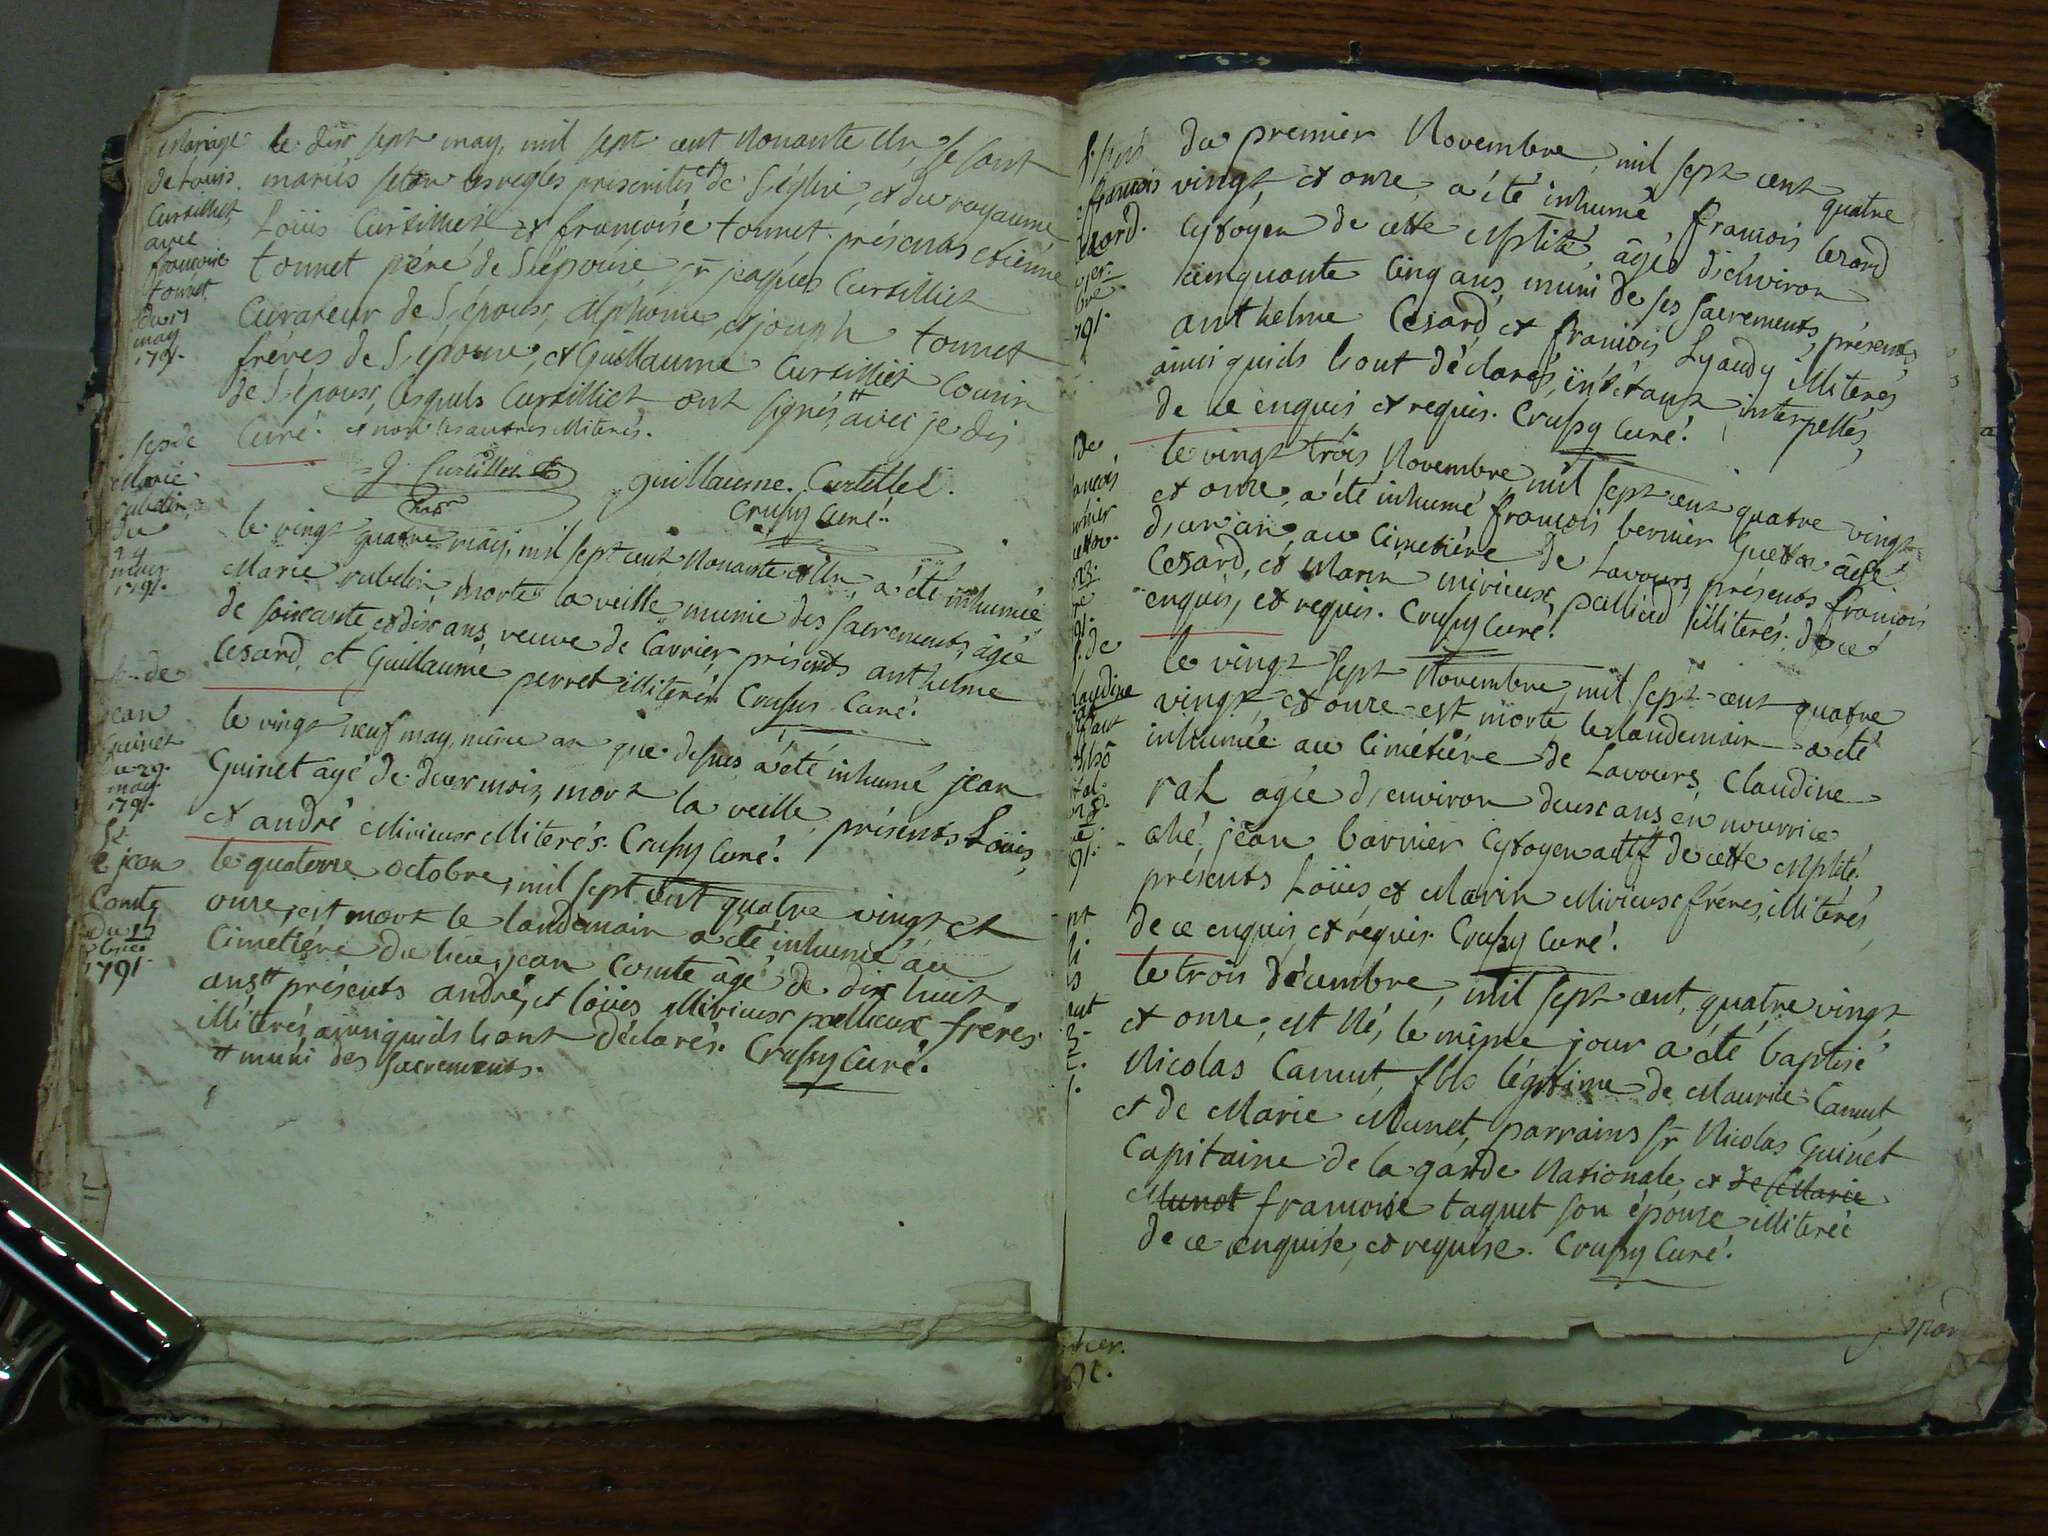 Mariage
de Louis
Curtilliet
avec
françoise
tonnet
du 17
may
1791.
le dix sept may, mil sept cent Nonante Un, se sont
mariés selon les regles prescrites et de L'église, et du royaume
Loüis Curtilliet et françoise tonnet. présents etiénne
tonnet pére de L'épouse, sr jacques Curtilliet
Curateur de L'époux, alphonse, et joseph tonnet
fréres de L'épouse, et Guillaume Curtilliet Cousin
de L'époux, lesquels Curtilliet ont signés avec je dis
Curé. et non les autres illiterés.
J Curtillet
guillaume. Curtillet.
Crussy Curé.
sep de
Marie
rubelin
du
24
may
1791.
le vingt quatre may, mil sept cent Nonante et Un, a été inhumée
Marie rubelin, morte la veille munie des sacrements, âgée
de soixante et dix ans, veuve de Carrier, présents anthelme
Cesard, et Guillaume perret illiterés. Crussy Curé.
de
jean
Guinet
du 29.
may
1791.
le vingt neuf may, même an que dessus a été inhumé jean
Guinet âgé de deux mois, mort la veille, présents Loüis,
et andré Mivieux illiterés. Crussy Curé.
jean
Comte
du 15
1791.
le quatorze octobre, mil sept cent quatre vingt et
onze, est mort le landemain a été inhumé au
Cimetiére du lieu, jean Comte âgé de dix huit
ans présents andré, et loüis Mivieux pallieux fréres
illiterés, ainsi quils Lont déclarés. Crussy Curé.
muni des sacrements.
françois
Cezard.
791.
du premier Novembre, mil sept cent quatre
vingt et onze, a été inhumé, françois Cezard
Cytoyen de cette Mplité, âgé d'environ
cinquante Cinq ans, muni de ses sacrements, présents,
anthelme Cesard, et françois Lyaudy illiterés
ainsi quils Lont déclarés, interpellés,
de ce enquis et requis. Crussy Curé.
de
le vingt trois Novembre, mil sept cent quatre vingt
et onze, a été inhumé françois bernier Guetta âgé
d'un an, au Cimetiére de Lavours, présents françois
Cesard, et Marin mivieux, pallieud illiterés. de ce
enquis, et requis. Crussy Curé.
de
Claudine
91.
le vingt sept Novembre, mil sept cent quatre
vingt, et onze est morte le landemain a été
inhumée au Cimétiére de Lavours, Claudine
rak agée d'environ deux ans, en nourrice
ché jean barnier Cytoyen actif de cette Mplité,
présents Loüis et Marin Mivieux fréres, illiterés,
de ce enquis, et requis. Crussy Curé.
le trois décembre, mil sept cent, quatre vingt,
et onze, est Né, le même jour a été baptisé
Nicolas Canut, fils légitime de Maurice Canut,
et de Marie Munet, parrains sr Nicolas Guinet
Capitaine de la garde Nationale, et de Marie
Munet françoise taquet son épouse illiterée
de ce enquise, et requise. Crussy Curé.